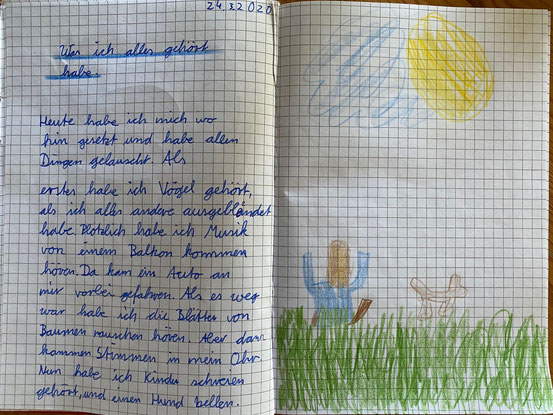 24.3.2020
Was ich alles gehört
habe.
Heute habe ich mich wo
hin gesetzt und habe allen
Dingen gelauscht. Als
erstes habe ich Vögel gehört,
als ich alles andere ausgeblendet
habe. Plötzlich habe ich Musik
von einem Balkon kommen
hören. Da kam ein Auto an
mir vorbei gefahren. Als es weg
war habe ich die Blätter von
Baumen rauschen hören. Aber dann
kammen Stimmen in mein Ohr.
Nun habe ich Kinder schreien
gehört, und einen Hund bellen.